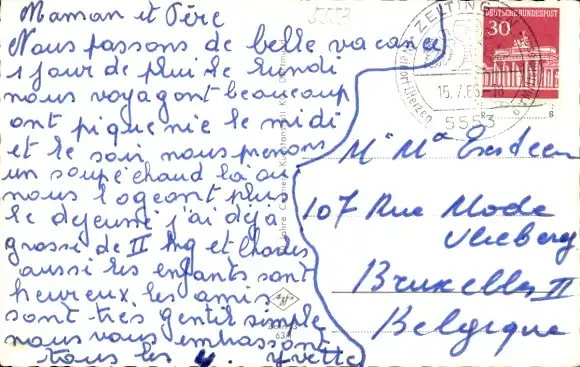 Maman et Père
Nous passons de belle vacance
1 jour de pluie le lundi
nous voyagont beaucoup
ont pique nie le midi
et le soir nous prenons
un soupé chaud là où
nous logeont plus
le dejeuné j'ai déjà
grossi de II kg et Charles
aussi les enfants sont
heureux. les amis
sont très gentil simple
nous vous embrassont
tous les 4. Yvette
5553
ZELTINGEN
15.7.68
5553
DEUTSCHE BUNDESPOST
30
Mr Me
107 Rue Mode
Vlieberg
Bruxelles II
Belgique